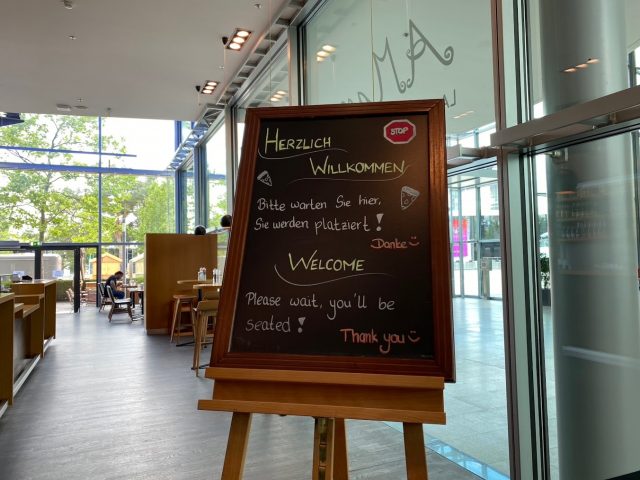 HERZLICH
WILLKOMMEN
STOP
Bitte warten Sie hier,
Sie werden platziert!
Danke
WELCOME
Please wait, you'll be
seated!
Thank you